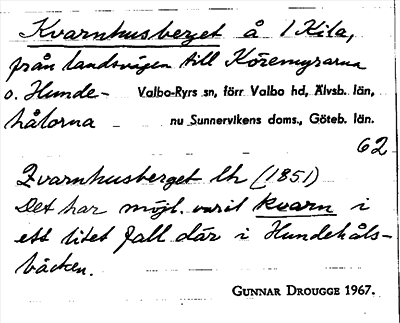 Kvarnhusberget å 1 Kila,
från landsvägen till Köremyrarna
o. Hunde- Valbo-Ryrs sn, förr Valbo hd, Älvsb. län,
hålorna nu Sunnervikens doms., Göteb. län.
62
Kvarnhusberget lh (1851)
Det har möjl. varit kvarn i
ett litet fall där i Hundehåls-
bäcken.
GUNNAR DROUGGE 1967.